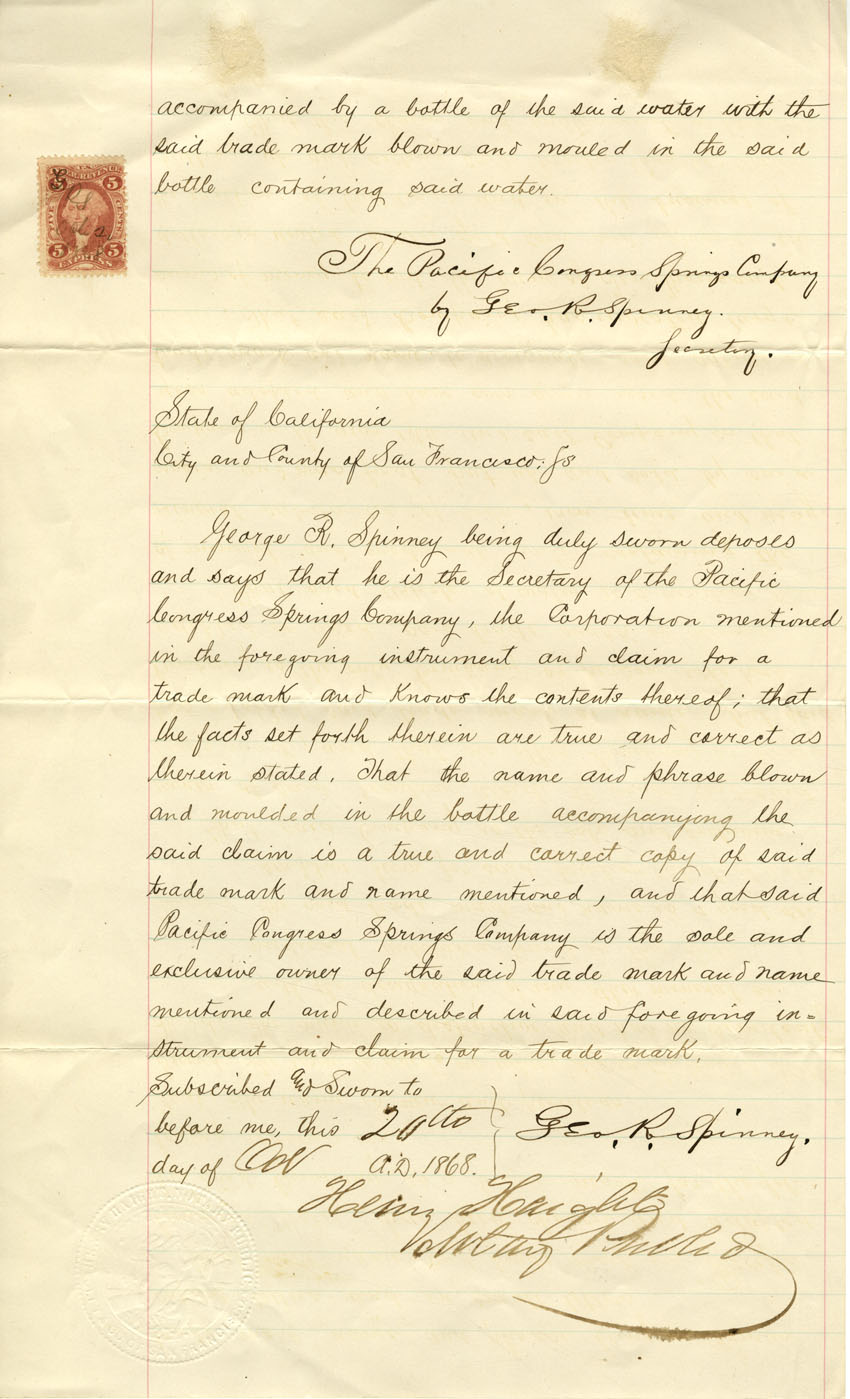 accompanied by a bottle of the said water with the
said trade mark blown and mouled in the said
bottle containing said water.
5 5
FIVE CENTS
5 5
EXPRESS
The Pacific Congress Springs Company
by Geo. R. Spinney.
Secretary.
State of California
City and County of San Francisco: ss
George R. Spinney being duly sworn deposes
and says that he is the Secretary of the Pacific
Congress Springs Company, the Corporation mentioned
in the foregoing instrument and claim for a
trade mark and Knows the contents thereof; that
the facts set forth therein are true and correct as
therein stated. That the name and phrase blown
and moulded in the bottle accompanying the
said claim is a true and correct copy of said
trade mark and name mentioned, and that said
Pacific Congress Springs Company is the sole and
exclusive owner of the said trade mark and name
mentioned and described in said foregoing in=
strument and claim for a trade mark.
Subscribed and Sworn to
before me, this 20th Geo. R. Spinney.
day of A.D. 1868.
Henry Haight
Notary Public